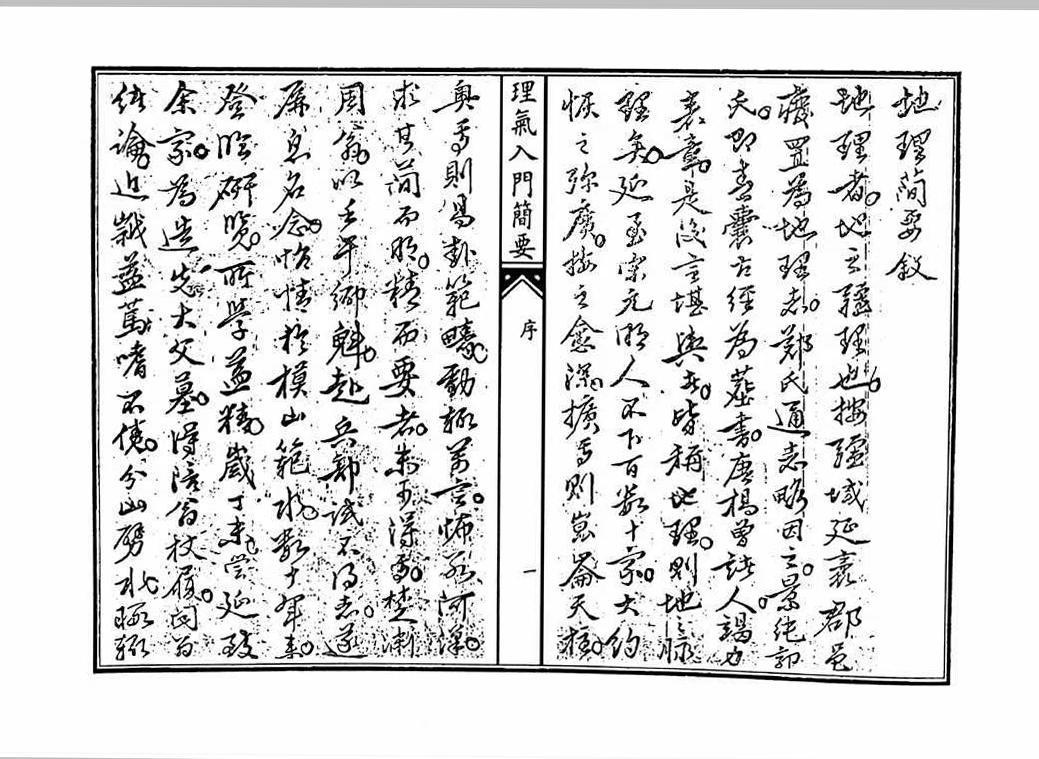 地理簡要敘
地理者地之疆理也按疆域延袤郡邑
廢置為地理志鄭氏通志略因之景純郭
氏即青囊古經為葬書唐楊曾諸人謁力
表章是後言堪輿者皆稱地理則地之脉
理矣延至宋元明人不下百數十家大約
恢之弥廣按之愈深擴焉則崑崙天柱
理氣入門簡要
序
一
奥焉則易卦範疇動極萬言怖若河漢
求其簡而明精而要者未可得焉楚浙
周翁以壬午鄉魁赴兵部試不得志遂
屏息名念怡情於模山範水數十年来
登臨研覽所學益精歲丁未嘗延致
余家為造先大父墓得陪翁杖履聞翁
緒論近觀益篤嗜不倦分山劈水